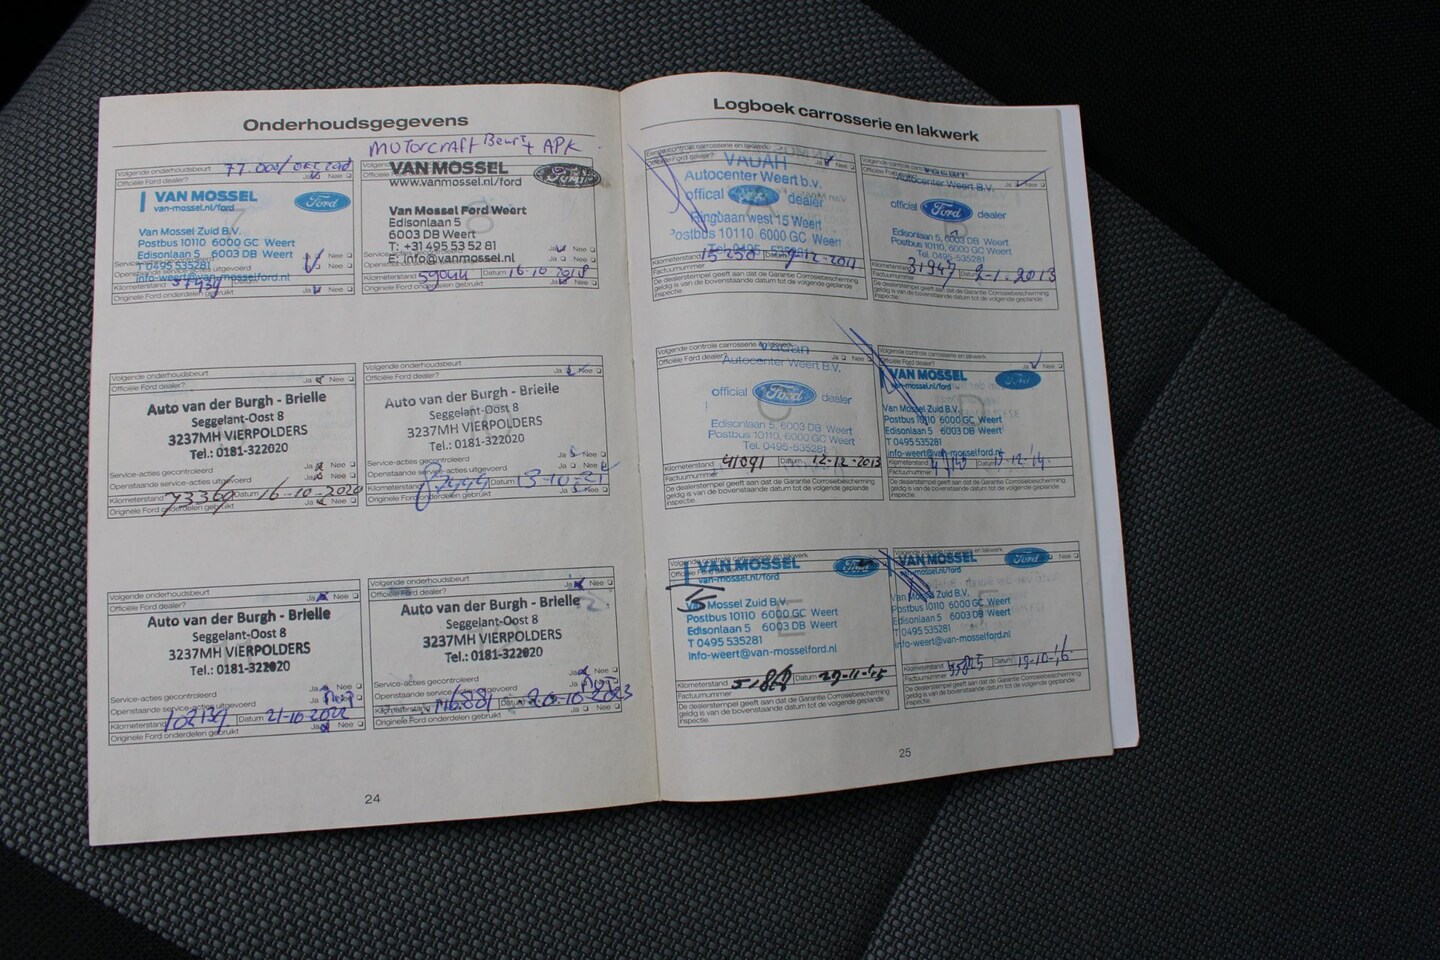 Onderhoudsgegevens
MOTORCRAFT Beurt + APK
Volgende onderhoudsbeurt 77.000/
Officiële Ford dealer? Ja Nee
VAN MOSSEL
van-mossel.nl/ford
Ford
Van Mossel Zuid B.V.
Postbus 10110 6000 GC Weert
Edisonlaan 5 6003 DB Weert
T 0495 535281
info-weert@van-mosselford.nl
Kilometerstand
Originele Ford onderdelen gebruikt Ja Nee
VAN MOSSEL
www.vanmossel.nl/ford
Ford
Van Mossel Ford Weert
Edisonlaan 5
6003 DB Weert
T: +31 495 53 52 81
E: info@vanmossel.nl
Ja Nee
Kilometerstand 59044 Datum 16-10-2018
Originele Ford onderdelen gebruikt Ja Nee
Volgende onderhoudsbeurt
Officiële Ford dealer? Ja Nee
Auto van der Burgh - Brielle
Seggelant-Oost 8
3237MH VIERPOLDERS
Tel.: 0181-322020
Service-acties gecontroleerd Ja Nee
Openstaande service-acties uitgevoerd Ja Nee
Kilometerstand 73369 Datum 16-10-2020
Originele Ford onderdelen gebruikt Ja Nee
Volgende onderhoudsbeurt
Officiële Ford dealer? Ja Nee
Auto van der Burgh - Brielle
Seggelant-Oost 8
3237MH VIERPOLDERS
Tel.: 0181-322020
Service-acties gecontroleerd Ja Nee
Openstaande service-acties uitgevoerd Ja Nee
Datum 13-10-21
Originele Ford onderdelen gebruikt Ja Nee
Volgende onderhoudsbeurt
Officiële Ford dealer? Ja Nee
Auto van der Burgh - Brielle
Seggelant-Oost 8
3237MH VIERPOLDERS
Tel.: 0181-322020
Service-acties gecontroleerd Ja Nee
Openstaande service-acties uitgevoerd Ja
Kilometerstand 102139 Datum 21-10-2022
Originele Ford onderdelen gebruikt Ja Nee
Volgende onderhoudsbeurt Ja Nee
Officiële Ford dealer?
Auto van der Burgh - Brielle
Seggelant-Oost 8
3237MH VIERPOLDERS
Tel.: 0181-322020
Service-acties gecontroleerd Ja Nee
Openstaande service-acties uitgevoerd
Kilometerstand Datum 20-10-2023
Originele Ford onderdelen gebruikt Ja Nee
24
Logboek carrosserie en lakwerk
Ja Nee
Autocenter Weert b.v.
offical Ford dealer
Ringbaan west 15 Weert
Postbus 10110 6000 GC Weert
Tel. 0495-535281
Kilometerstand 15258 Datum 9-12-2011
Factuurnummer
De dealerstempel geeft aan dat de Garantie Corrosiebescherming
geldig is van bovenstaande datum tot de volgende geplande
inspectie.
Volgende controle carrosserie en lakwerk
Ja Nee
Autocenter Weert B.V.
official Ford dealer
Edisonlaan 5, 6003 DB Weert
Postbus 10110, 6000 GC Weert
Tel. 0495-535281
Kilometerstand 31947 Datum 2-1-2013
Factuurnummer
De dealerstempel geeft aan dat de Garantie Corrosiebescherming
geldig is van bovenstaande datum tot de volgende geplande
inspectie.
Volgende controle carrosserie en lakwerk
Officiële Ford dealer? Ja Nee
Vadah
Autocenter Weert B.V.
official Ford dealer
Edisonlaan 5, 6003 DB Weert
Postbus 10110, 6000 GC Weert
Tel. 0495-535281
Kilometerstand 41091 Datum 12-12-2013
Factuurnummer
De dealerstempel geeft aan dat de Garantie Corrosiebescherming
geldig is van de bovenstaande datum tot de volgende geplande
inspectie.
Volgende controle carrosserie en lakwerk
Officiële Ford dealer? Ja Nee
VAN MOSSEL
van-mossel.nl/ford
Ford
Van Mossel Zuid B.V.
Postbus 10110 6000 GC Weert
Edisonlaan 5 6003 DB Weert
T 0495 535281
info-weert@van-mosselford.nl
Kilometerstand Datum 15-12-'14
Factuurnummer
De dealerstempel geeft aan dat de Garantie Corrosiebescherming
geldig is van de bovenstaande datum tot de volgende geplande
inspectie.
VAN MOSSEL
van-mossel.nl/ford
Ford
Van Mossel Zuid B.V.
Postbus 10110 6000 GC Weert
Edisonlaan 5 6003 DB Weert
T 0495 535281
info-weert@van-mosselford.nl
Kilometerstand Datum 29-11-'15
Factuurnummer
De dealerstempel geeft aan dat de Garantie Corrosiebescherming
geldig is van de bovenstaande datum tot de volgende geplande
inspectie.
Nee
VAN MOSSEL
van-mossel.nl/ford
Ford
Van Mossel Zuid B.V.
Postbus 10110 6000 GC Weert
Edisonlaan 5 6003 DB Weert
T 0495 535281
info-weert@van-mosselford.nl
Kilometerstand Datum 19-10-'16
Factuurnummer
De dealerstempel geeft aan dat de Garantie Corrosiebescherming
geldig is van de bovenstaande datum tot de volgende geplande
inspectie.
25